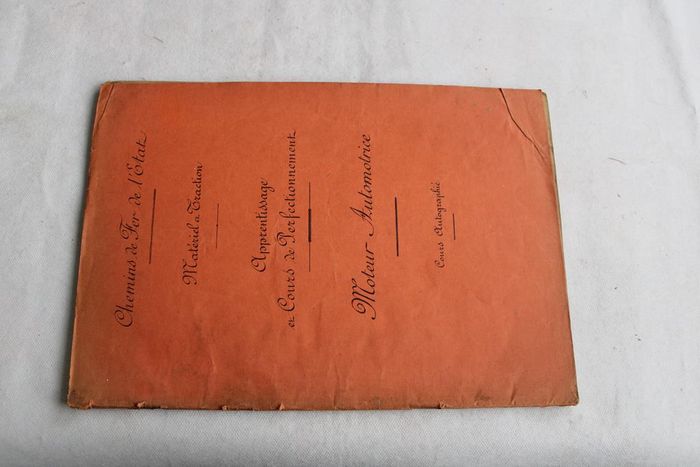 Chemins de Fer de l'Etat
Matériel & Traction
Apprentissage
et Cours de Perfectionnement
Moteur Automotrice
Cours Autographié